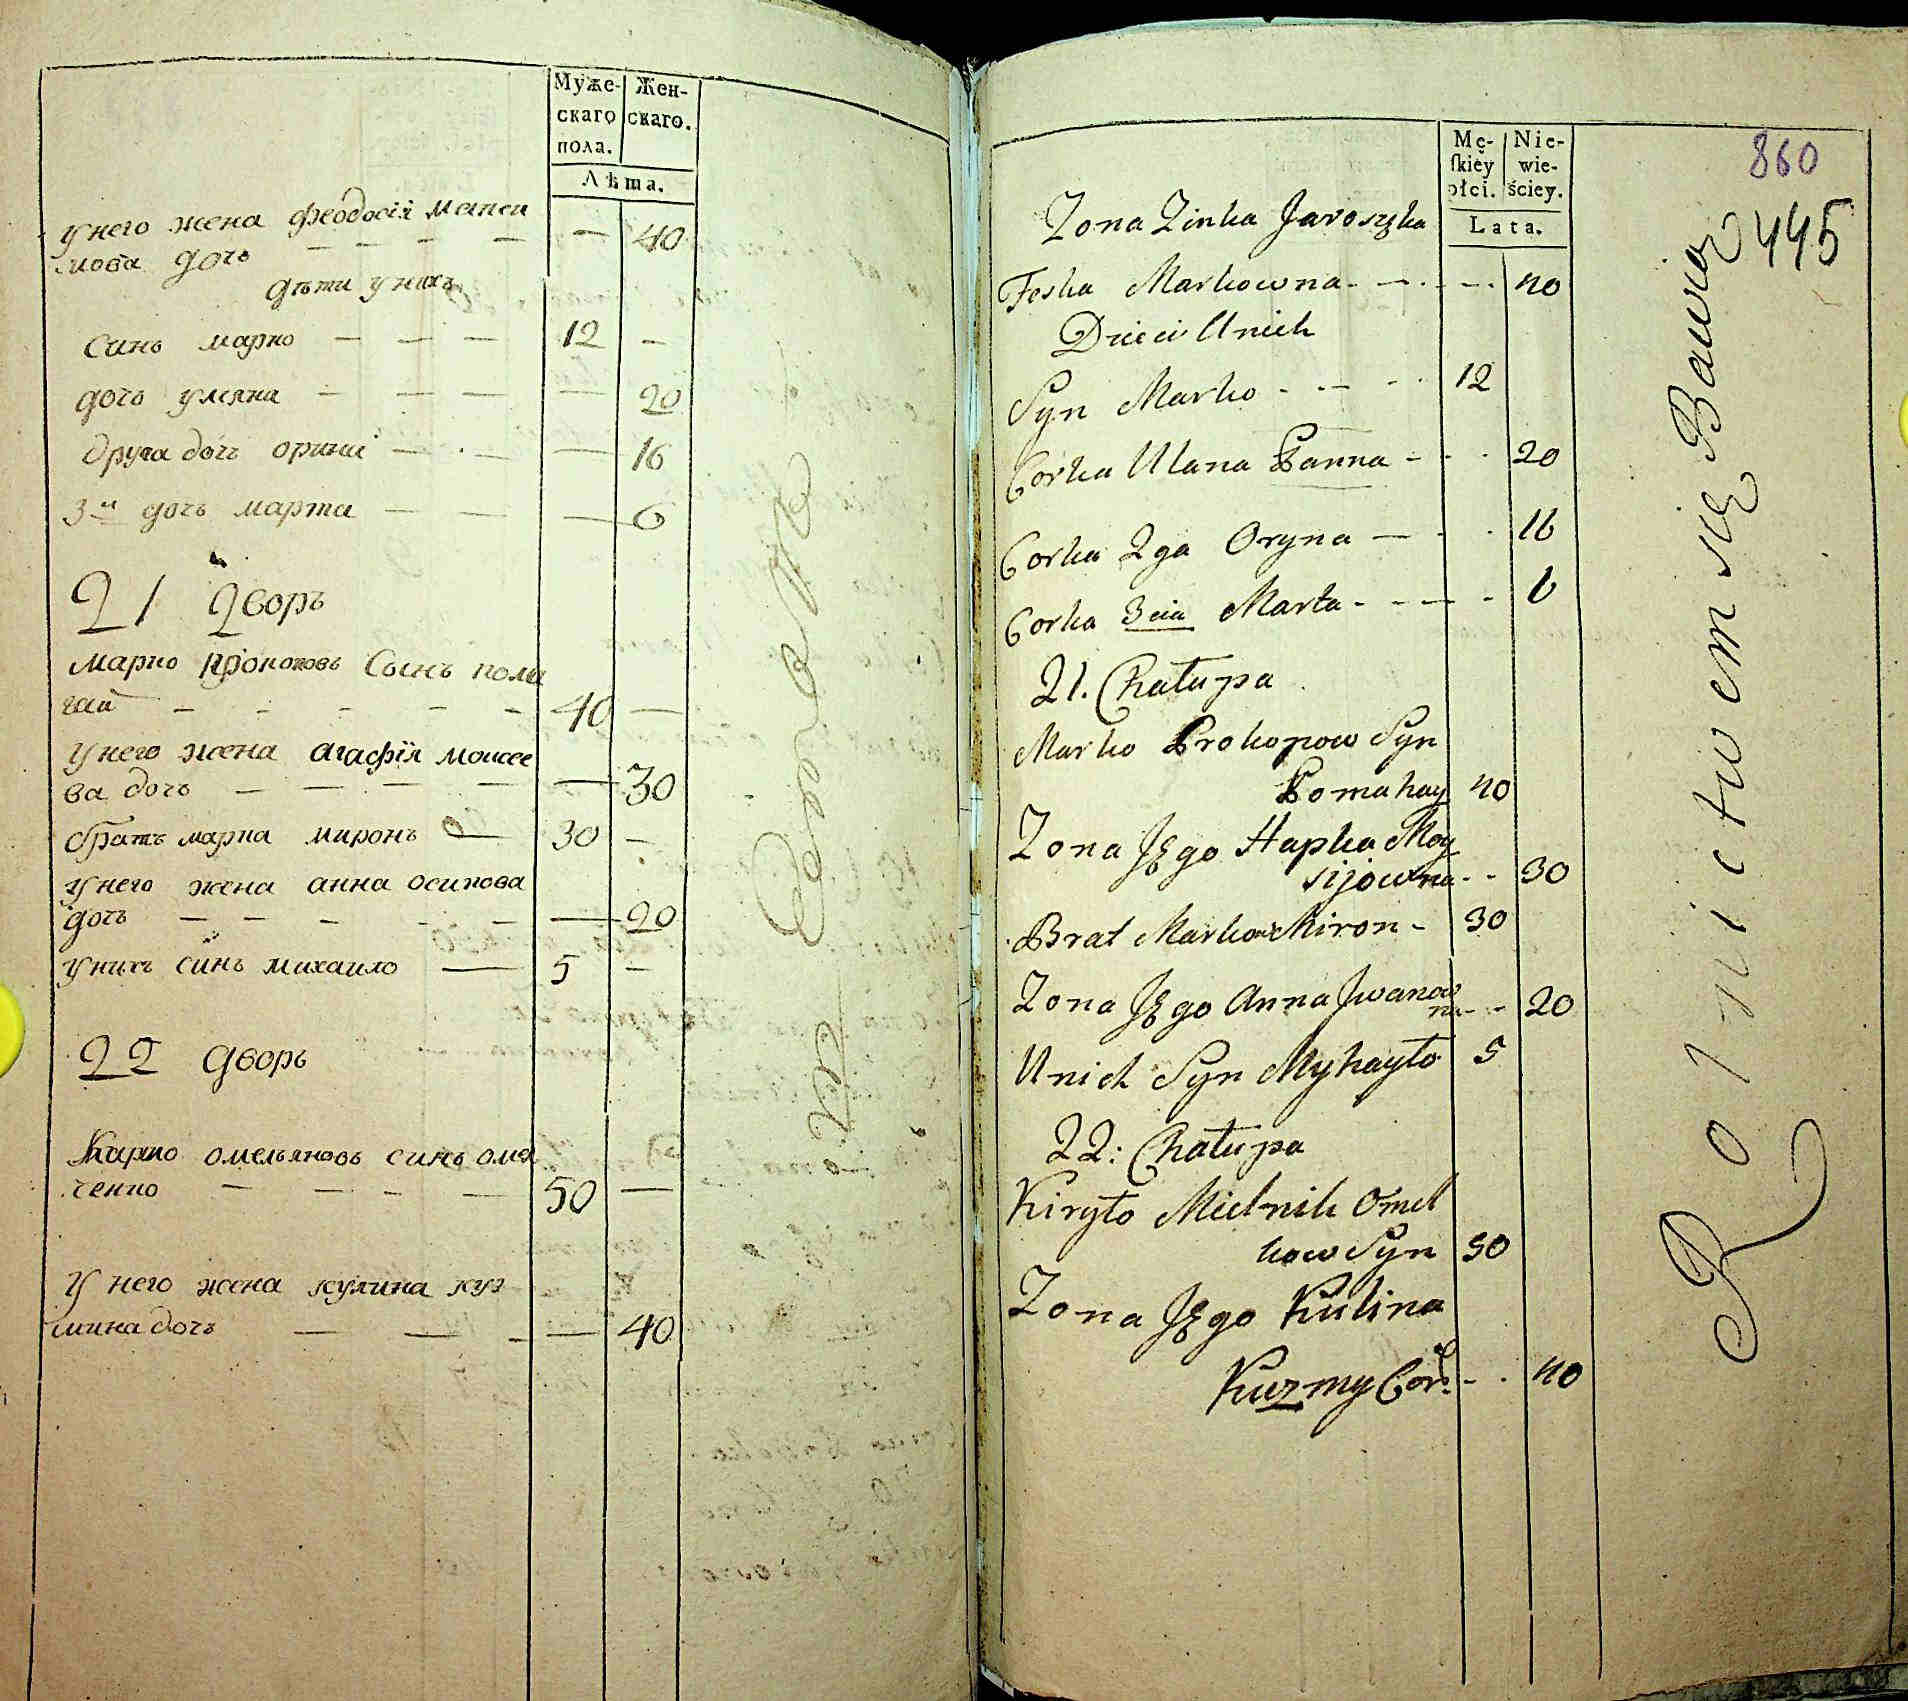 Муже-
скаго
пола.
Жен-
скаго.
Лѣта.
у него жена феодосія
мова дочь — — — — — 40
дѣти у нихъ
синъ марко — — — 12 —
дочь уляна — — — — 20
друга дочь орина — — — 16
3я дочь марта — — — 6
21 Дворъ
марко прокоповъ Сынъ пома
гай — — — — — 40 —
у него жена агафія моисее
ва дочь — — — — — 30
братъ марка миронъ — 30 —
у него жена анна осипова
дочь — — — — — — 20
у нихъ синъ михаило — 5 —
22 дворъ
Карпо омельяновъ синъ омел
ченко — — — — 50 —
У него жена кулина куз
мина дочь — — — — 40
860
445
Mę-
skiéy
płci.
Nie-
wie-
ściey.
Lata.
Zona Zinka Jaroszka
Feska Markowna - — - — - 40
Dzieci Unich
Syn Marko - - — - - 12
Corka Ulana Panna - - - 20
Corka 2ga Oryna — - - 16
Corka 3cia Marta - - — - 6
21. Chałupa
Marko Prokopow Syn
Pomahay 40
Zona Jego Hapka Moy
sijowna - - 30
Brat Markow Miron - 30
Zona Jego Anna Jwanow
na - - 20
Unich Syn Myhayło 5
22: Chałupa
Kiryło Mielnik Omel
kow Syn 50
Zona Jego Kulina
Kuzmy Cor: - - 40
Rolnictwem się Bawią